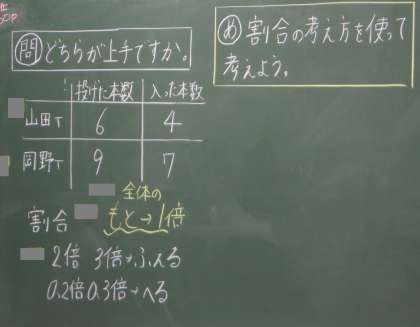 問 どちらが上手ですか。
投げた本数 入った本数
山田T 6 4
岡野T 9 7
全体の
割合 もと→1倍
2倍 3倍→ふえる
0.2倍 0.3倍→へる
め 割合の考え方を使って
考えよう。